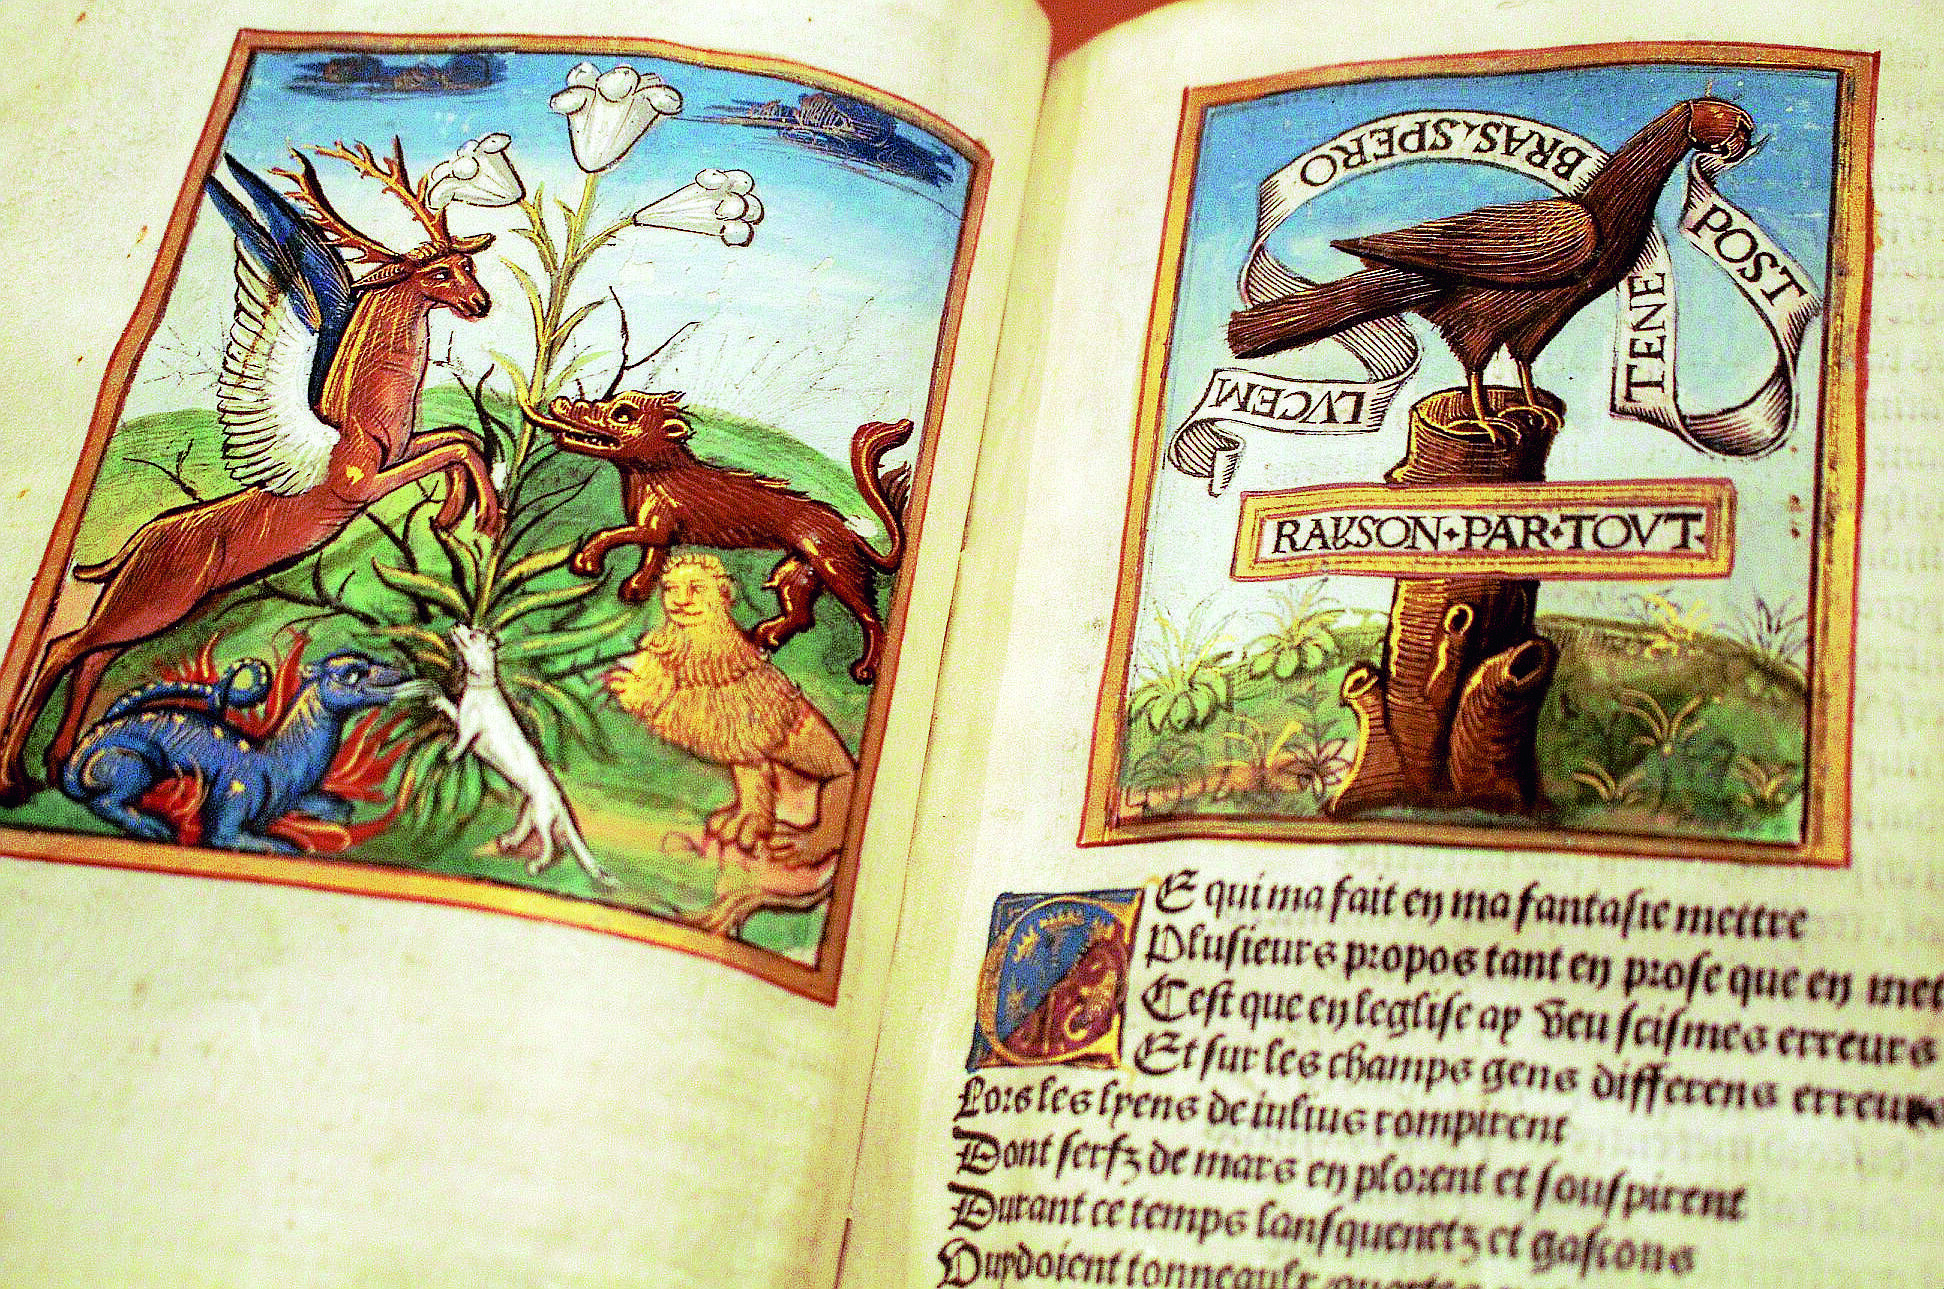 POST
TENE
BRAS. SPERO
LVCEM
RAYSON·PAR·TOVT·
E qui ma fait en ma fantasie mettre
Plusieurs propos tant en prose que en met
Cest que en leglise ay veu scismes erreurs
Et sur les champs gens differens erreurs
Lors les lyens de iulius rompirent
Dont serfz de mars en plorent et souspirent
Durant ce temps lansquenetz et gascons